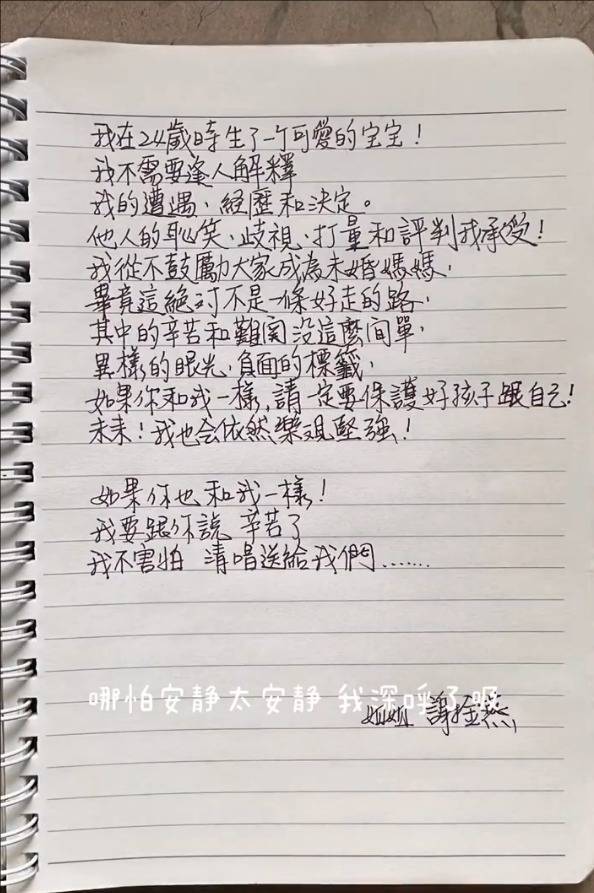 我在24歲時生了一个可愛的宝宝！
我不需要逢人解釋
我的遭遇，經歷和決定。
他人的恥笑、歧視、打量和評判我承受！
我從不鼓勵大家成為未婚媽媽，
畢竟這絕对不是一條好走的路，
其中的辛苦和難関没這麼间單，
異樣的眼光，負面的標籤，
如果你和我一樣，請一定要保護好孩子跟自己！
未来！我也会依然樂观堅強！
如果你也和我一樣！
我要跟你說 辛苦了
我不害怕 清唱送給我們……
哪怕安静太安静 我深呼了吸
妞妞 謝